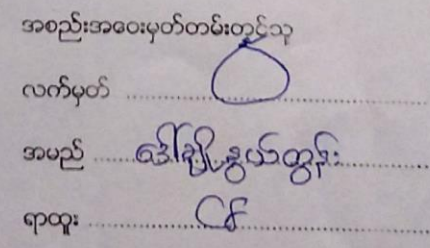 အစည်းအဝေးမှတ်တမ်းတင်သူ
လက်မှတ်
အမည် ဒေါ်ချိုနွယ်ထွန်း
ရာထူး